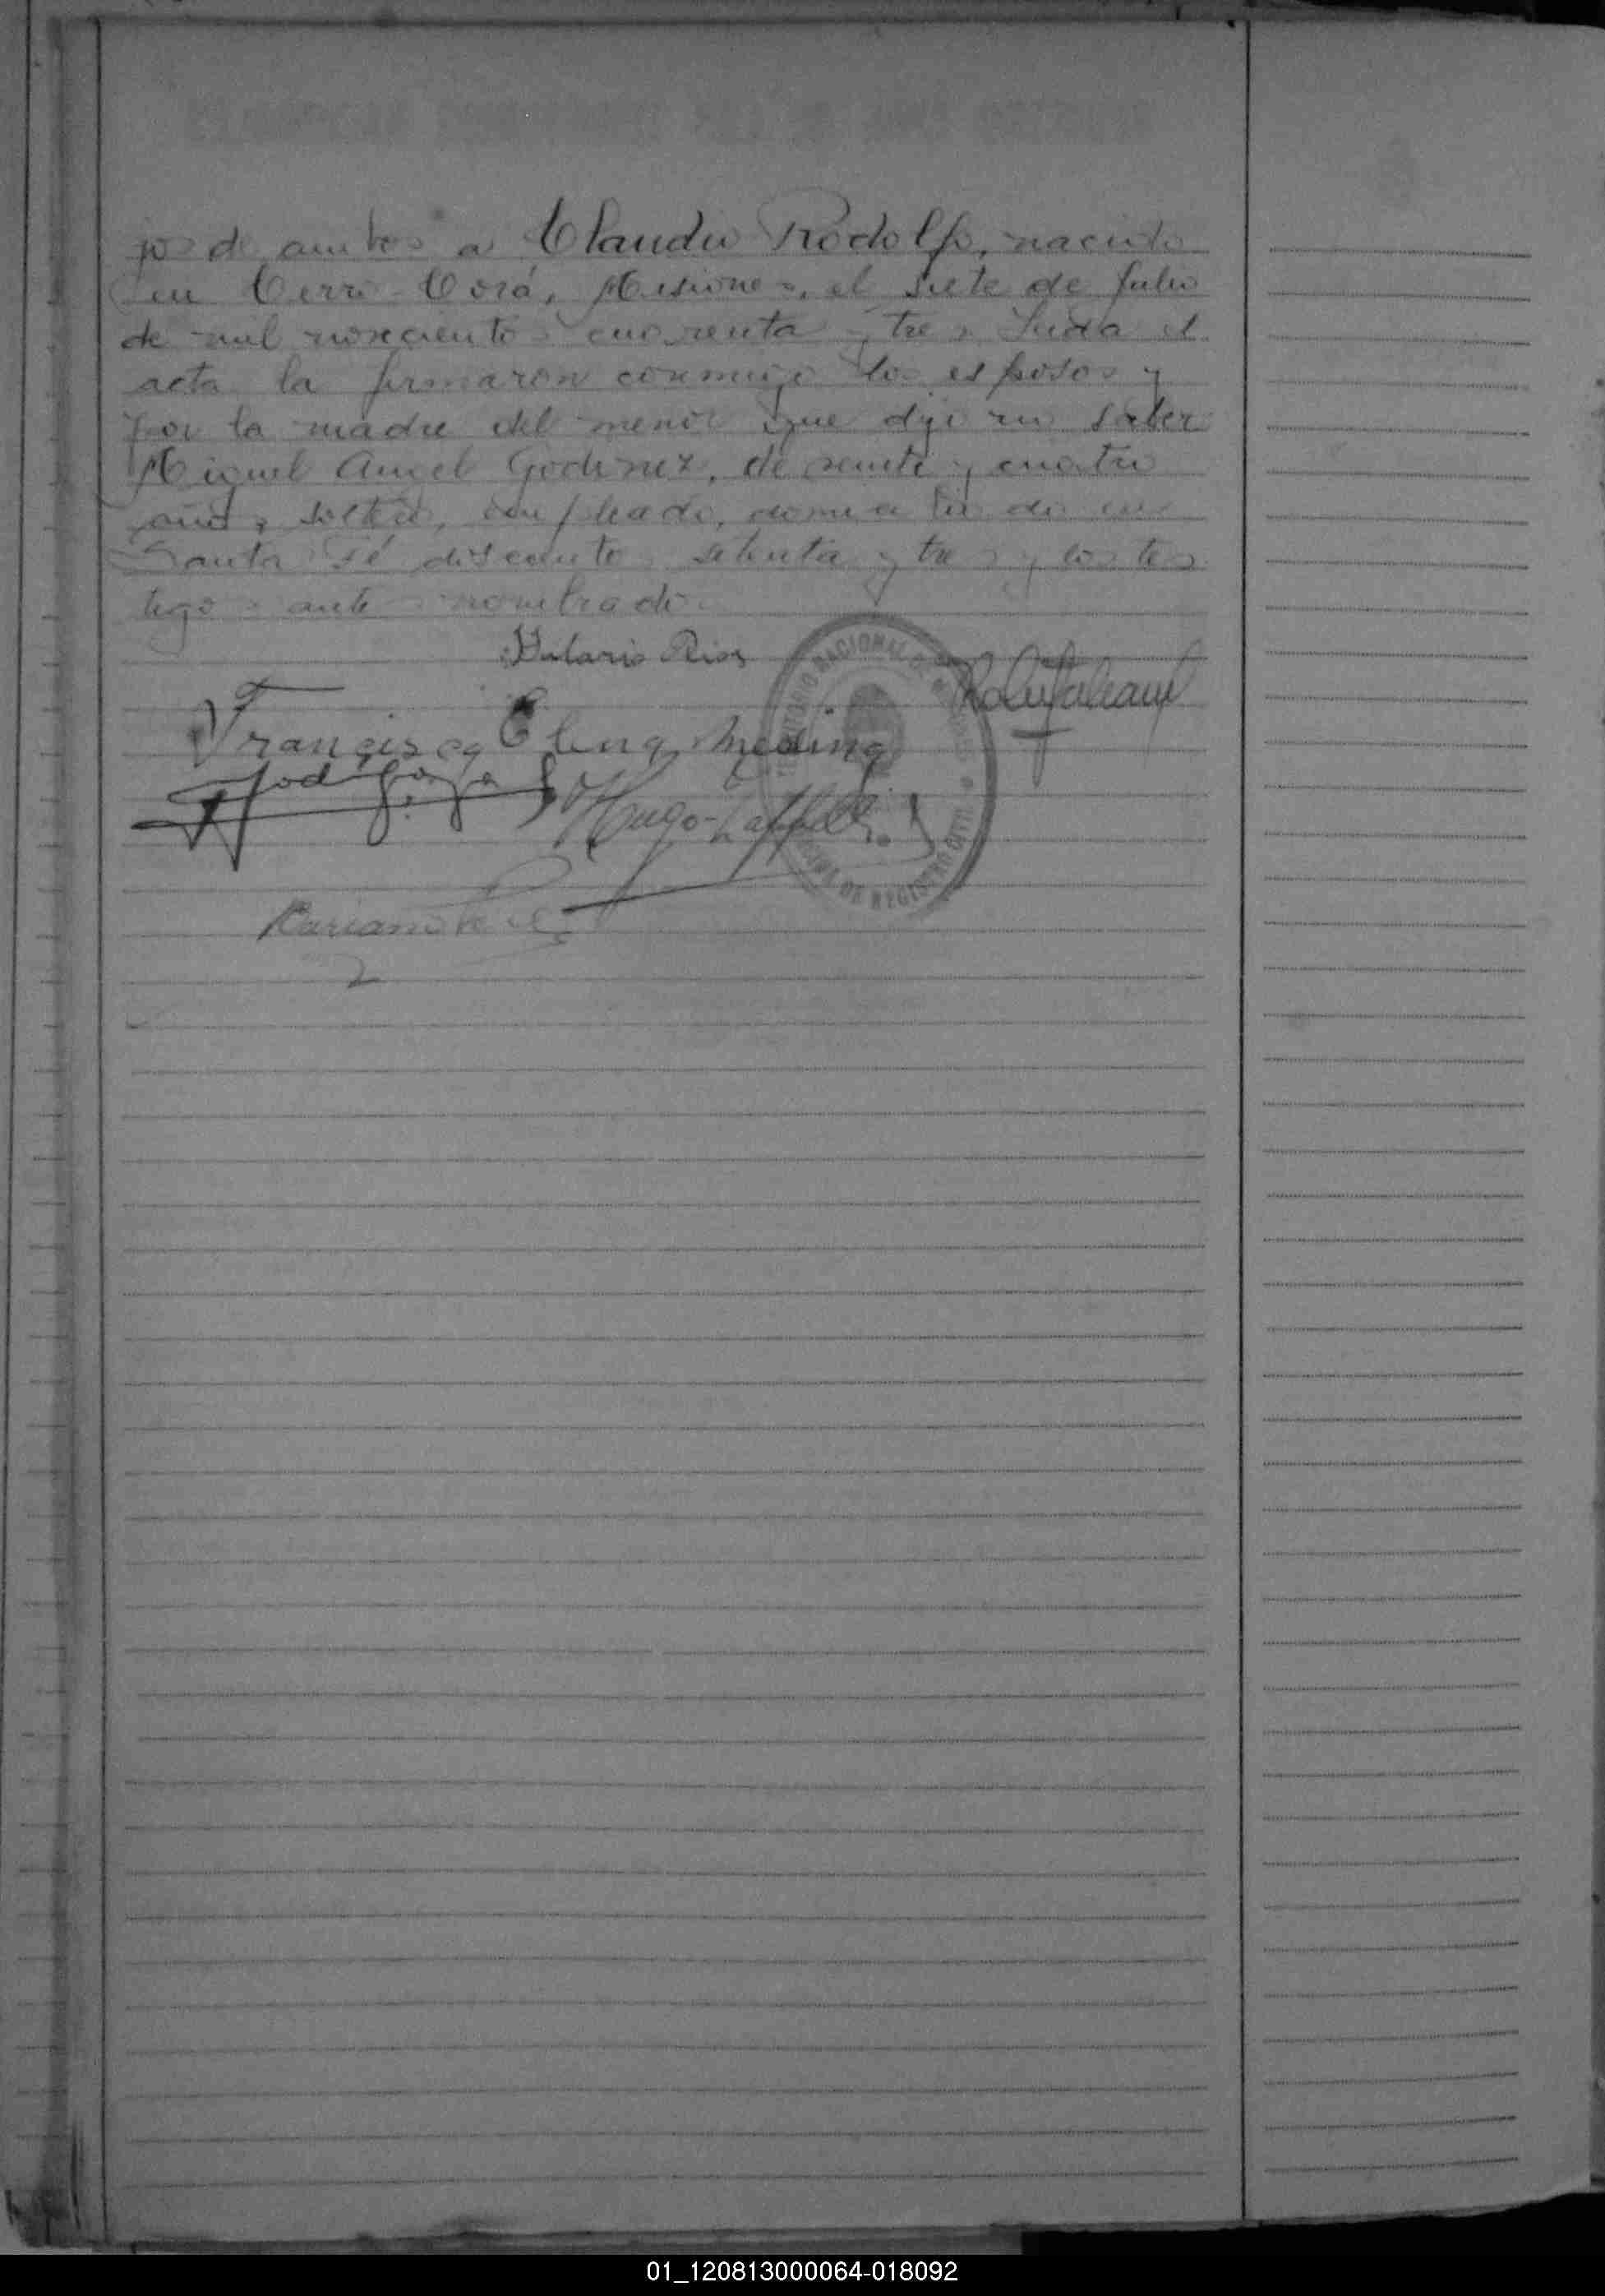 jos de ambos a Claudio Rodolfo, nacido
en Cerro-Corá, Misiones, el siete de Julio
de mil novecientos cuarenta y tres. Leida el
acta la firmaron conmigo los esposos y
por la madre del menor que dijo no saber
Miguel Angel Godinez, de veinte y cuatro
años, soltero, empleado, domiciliado en
Santa Fé doscientos setenta y tres y los tes
tigos antes nombrados.
Hilario Rios
Francisca Elena Medina
Hugo
Mariano
TERRITORIO NACIONAL DE MISIONES
DE REGISTRO CIVIL
01_120813000064-018092